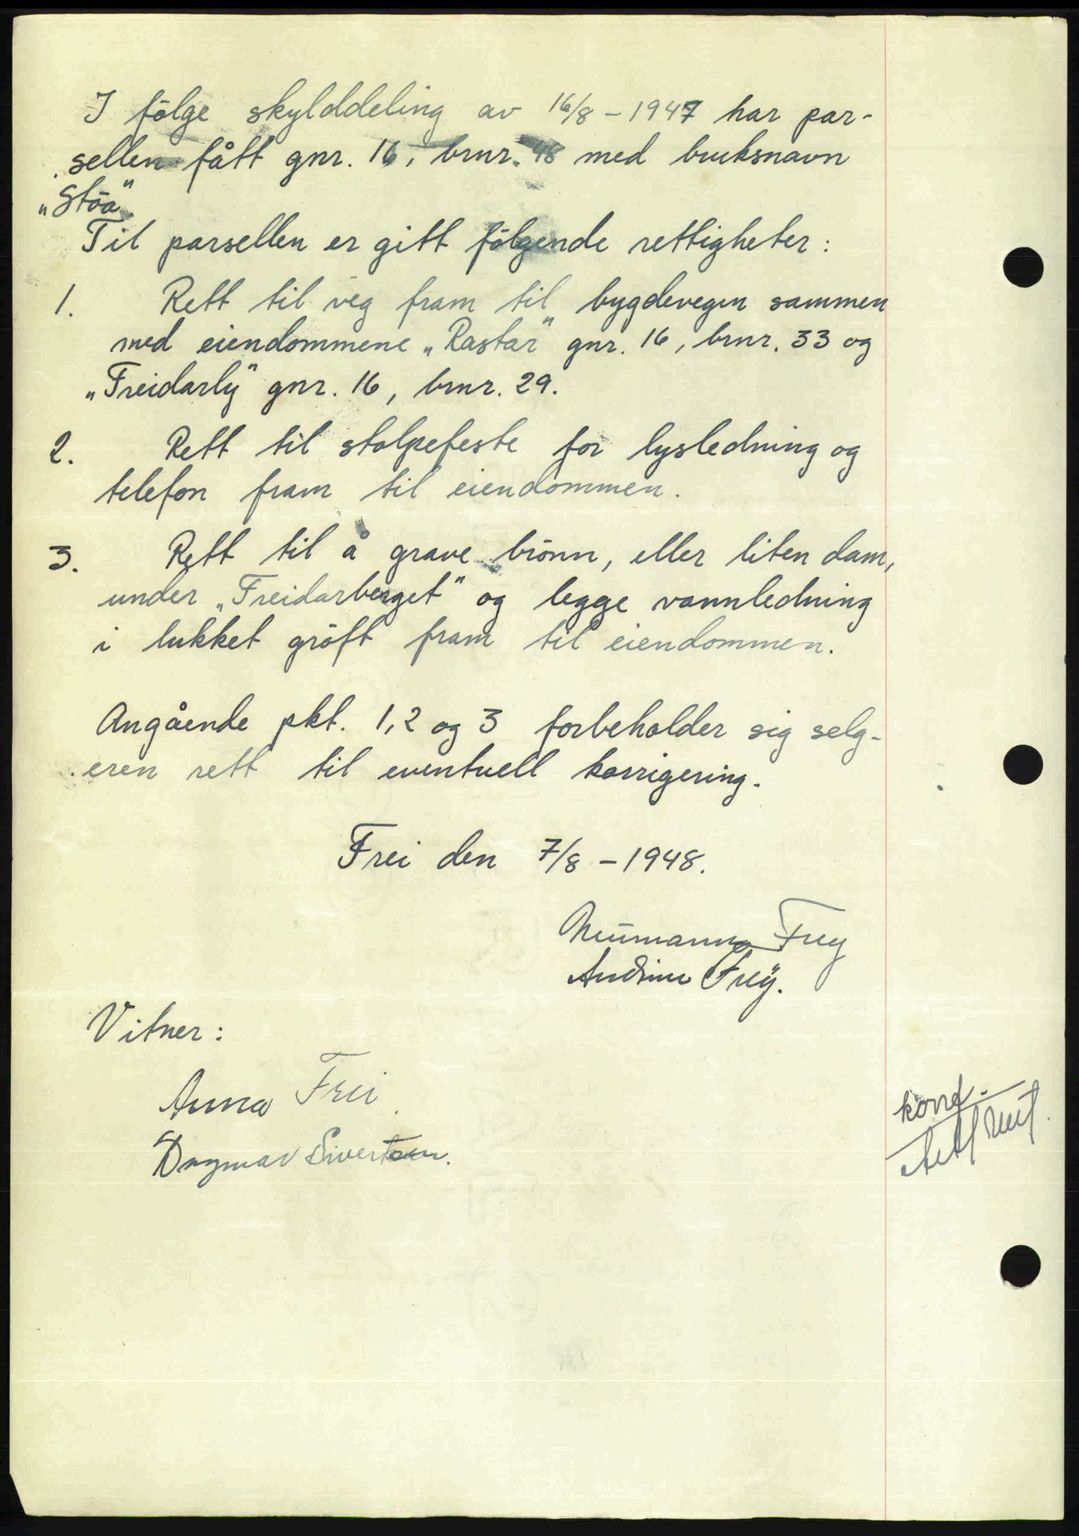 I følge skylddeling av 16/8 - 1947 har par-
sellen fått gnr. 16, brnr. 48 med bruksnavn
„Støa".
Til parsellen er gitt følgende rettigheter:
1. Rett til veg fram til bygdevegen sammen
med eiendommene „Rastar" gnr. 16, brnr. 33 og
„Freidarly" gnr. 16, brnr. 29.
2. Rett til stolpefeste for lysledning og
telefon fram til eiendommen.
3. Rett til å grave brønn, eller liten dam,
under „Freidarberget" og legge vannledning
i lukket grøft fram til eiendommen.
Angående pkt. 1, 2 og 3 forbeholder sig selg-
eren rett til eventuell korrigering.
Frei den 7/8 - 1948.
Neumann Frey
Andrine Frey.
Vitner:
Anna Frei
Dagmar Sivertsen.
konf.